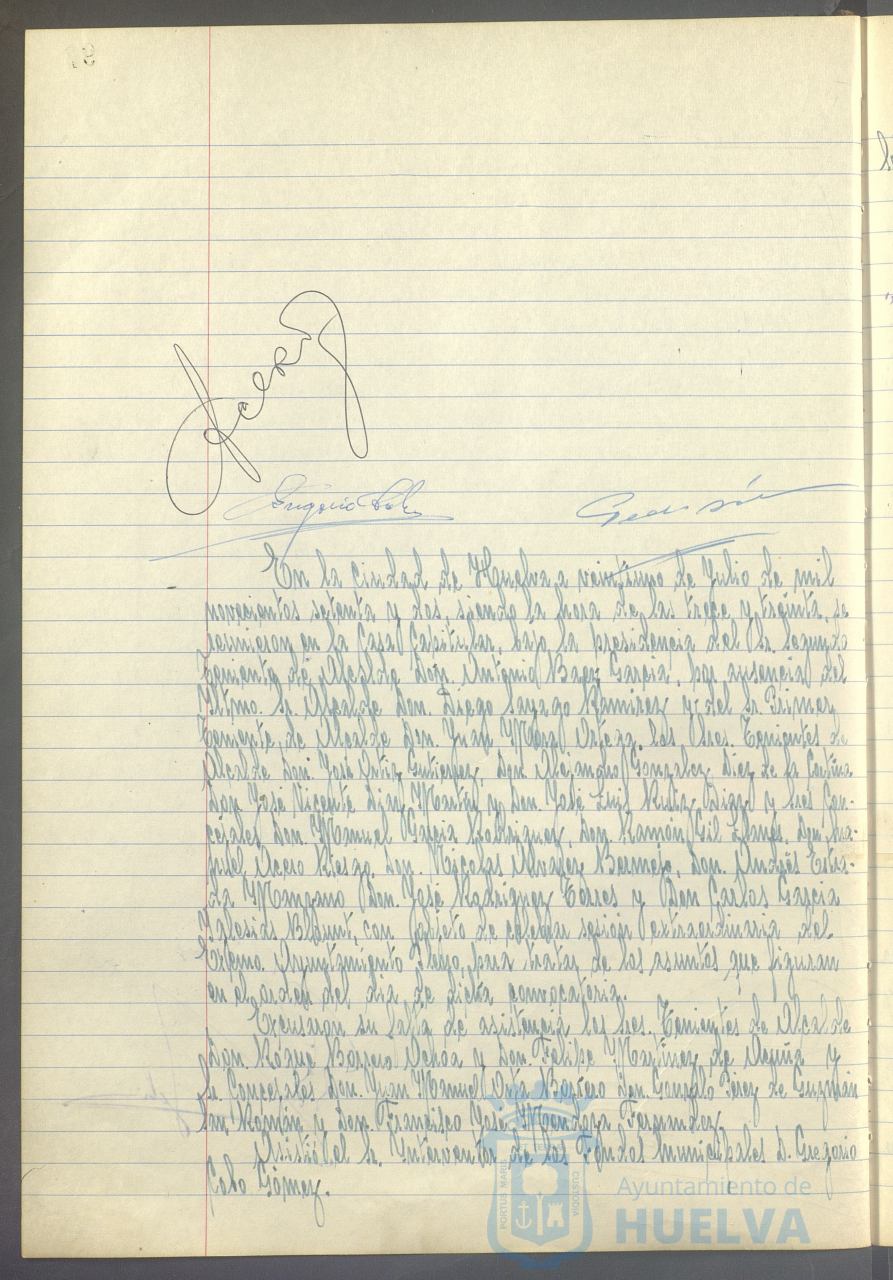 En la ciudad de Huelva a veintiuno de Julio de mil
novecientos setenta y dos, siendo la hora de las trece y treinta, se
reunieron en la Casa Capitular, bajo la presidencia del Sr. Segundo
Teniente de Alcalde Don. Antonio Baez Garcia, por ausencia del
Iltmo. Sr. Alcalde Don. Diego Sayago Ramirez y del Sr. Primer
Teniente de Alcalde Don. Juan Mora Ortega, los Sres. Tenientes de
Alcalde Don. José Ortiz Gutierrez, Don. Alejandro Gonzalez Diez de la Cortina
Don José Vicente Diaz Martin y Don. José Luis Ruiz Diaz y Sres Con-
cejales Don. Manuel Garcia Rodriguez, Don. Ramón Gil Llanes, Don.
Acero Riesgo, Don. Nicolas Alvarez Bermejo, Don. Andrés Estra-
da Manzano Don. José Rodriguez Torres y Don Carlos Garcia
Iglesias Blount, con objeto de celebrar sesión extraordinaria del
Excmo. Ayuntamiento Pleno, para tratar de los asuntos que figuran
en el orden del dia de dicha convocatoria.
Excusaron su falta de asistencia los Sres. Tenientes de Alcalde
Don. Roque Barrero Ochoa y Don. Felipe Martinez de Acuña y
Sr. Concejales Don. Juan Manuel Orta Barrero Don. Gonzalo Pérez de Guzmán
San Román y Don. Francisco José Mendoza Fernandez.
Asistió el Sr. Interventor de los Fondos Municipales D. Gregorio
Cobo Gómez.
PORTUS MARIS
CUSTODIA
Ayuntamiento de
HUELVA